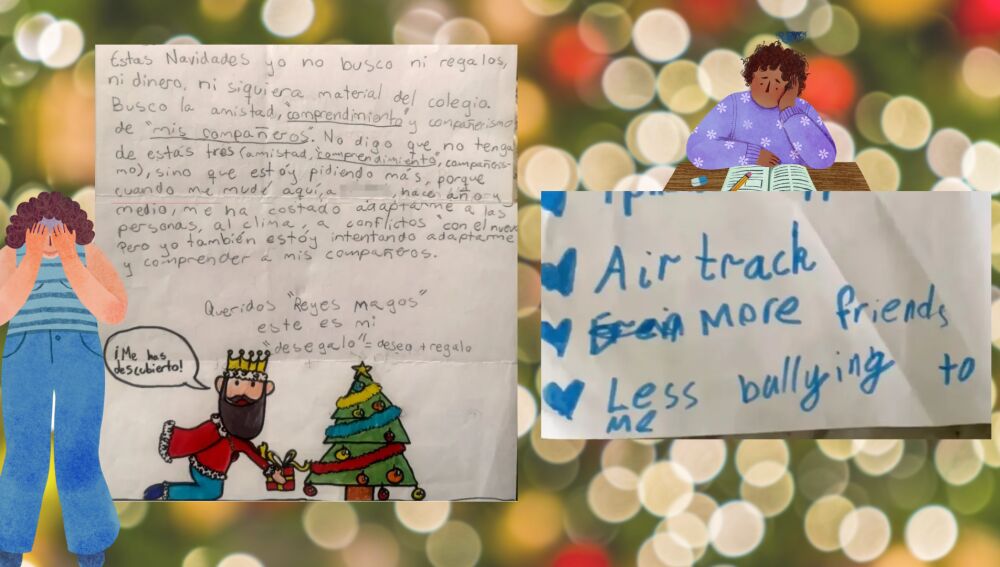 Estas Navidades yo no busco ni regalos,
ni dinero, ni siquiera material del colegio
Busco la amistad, "comprendimiento" y compañerismo
de "mis compañeros". No digo que no tenga
de estas tres (amistad, comprendimiento, compañeris-
mo), sino que estoy pidiendo más, porque
cuando me mudé aquí, a hace año y
medio, me ha costado adaptarme a las
personas, al clima, a conflictos "con el nuevo
Pero yo también estoy intentando adaptarme
y comprender a mis compañeros.
Queridos "Reyes magos"
este es mi
"desegalo" = deseo + regalo
¡Me has
descubierto!
Air track
More friends
Less bullying to
me